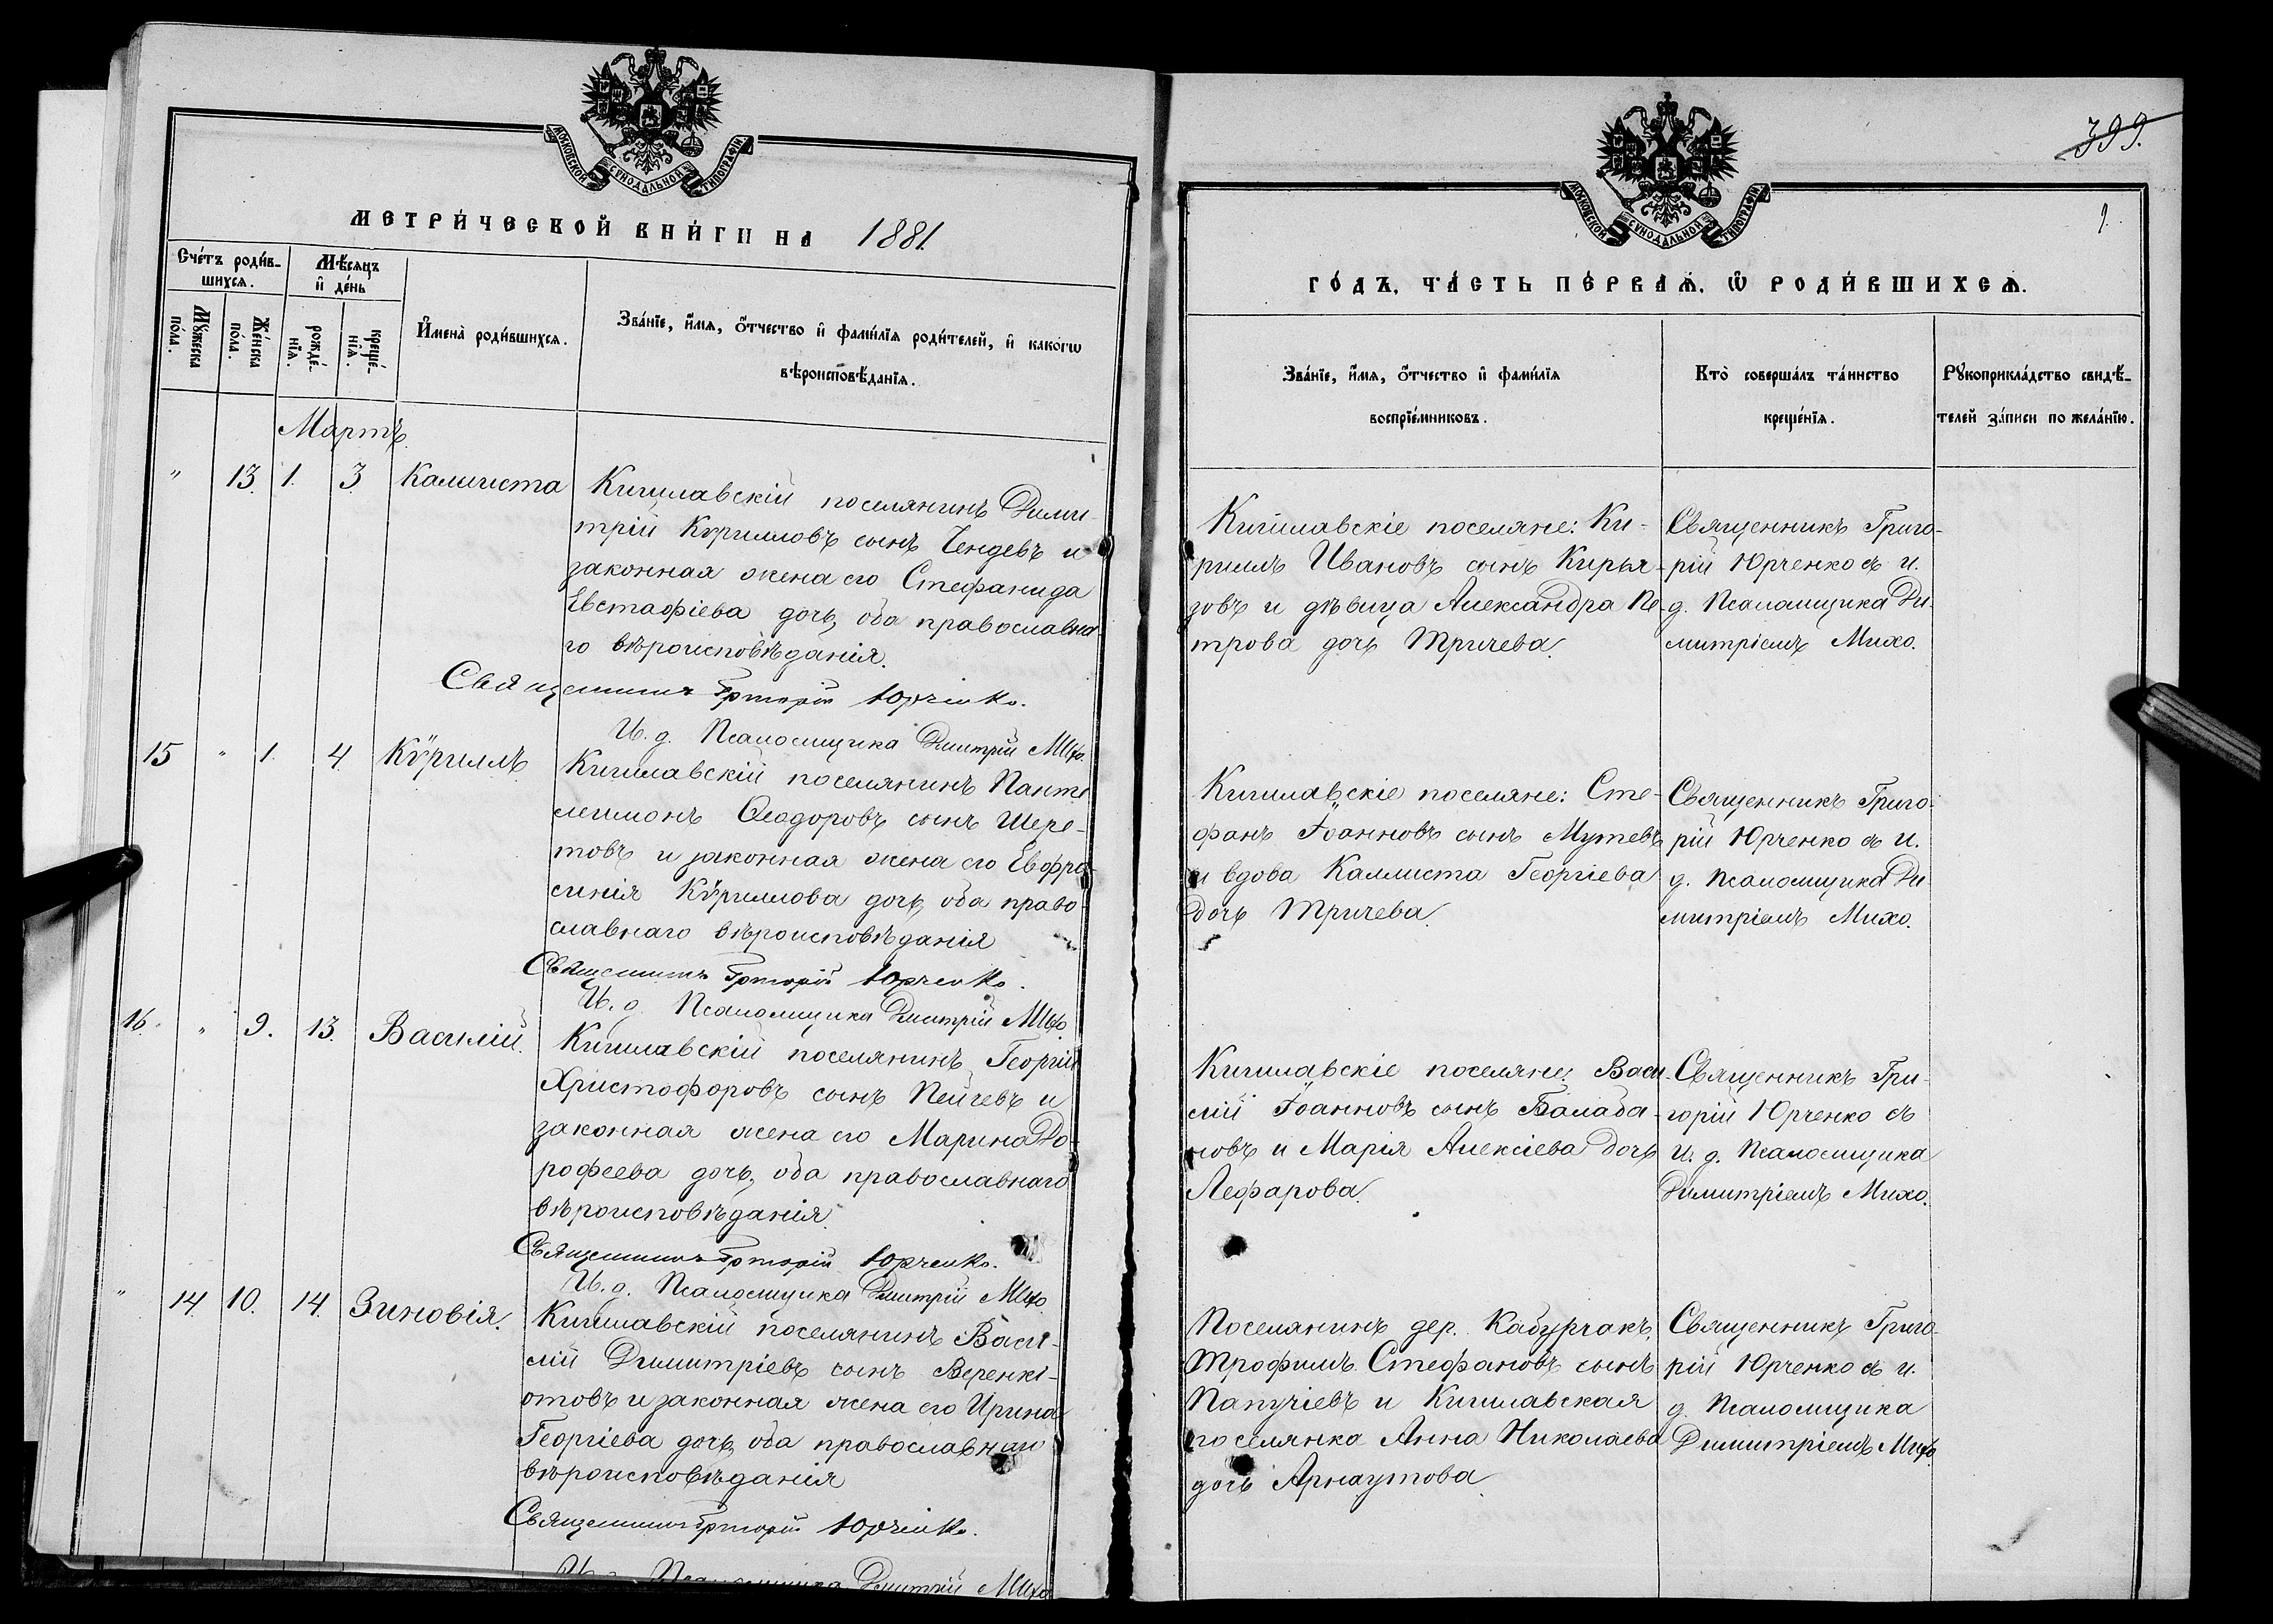 МОСКОВСКОЙ СѴНОДАЛЬНОЙ ТИПОГРАФІИ
МЕТРИ́ЧЕСКОЙ КНИ́ГИ НА 1881
Сче́тъ роди́в-
шихся.
Мѣ́сяцъ
и҆ де́нь
Му́жеска
по́ла.
Же́нска
по́ла.
рожде́-
нїя.
креще́-
нїя.
И҆мена̀ роди́вшихся.
Зва́нїе, и҆́мя, ѻ҆́тчество и҆ фами́лїя роди́телей, и҆ како́гѡ
вѣроисповѣ́данїя.
Мартъ.
" 13. 1. 3. Каллиста
Кигилавскій поселянинъ Дими-
трій Кѵрилловъ сынъ Чендевъ и
законная жена его Стефанида
Евстафіева дочь, оба православна-
го вѣроисповѣданія.
Священникъ Григорій Юрченко.
И. д. Псаломщика Дмитрій Михо.
15 " 1. 4. Кѵриллъ
Кигилавскій поселянинъ Панте
леимонъ Ѳеодоровъ сынъ Шере-
товъ и законная жена его Евфро-
синія Кѵриллова дочь, оба право-
славнаго вѣроисповѣданія
Священникъ Григорій Юрченко.
И. д. Псаломщика Дмитрій Михо
16. " 9. 13. Василій.
Кигилавскій поселянинъ Георгій
Христофоровъ сынъ Пейчевъ и
законная жена его Марина До-
рофеева дочь, оба православнаго
вѣроисповѣданія.
Священникъ Григорій Юрченко.
И. д. Псаломщика Дмитрій Михо.
" 14. 10. 14. Зиновія.
Кигилавскій поселянинъ Васи-
лій Димитріевъ сынъ Веренкі-
отовъ и законная жена его Ирина
Георгіева дочь, оба православнаго
вѣроисповѣданія
Священникъ Григорій Юрченко.
И. д. Псаломщика Дмитрій Михо
399.
МОСКОВСКОЙ СѴНОДАЛЬНОЙ ТИПОГРАФІИ
ГО́ДЪ, ЧА́СТЬ ПЕ́РВАЯ, Ѡ҆ РОДИ́ВШИХСЯ.
Зва́нїе, и҆́мя, ѻ҆́тчество и҆ фами́лїя
воспрїе́мниковъ.
Кто̀ соверша́лъ та́инство
креще́нїя.
Рꙋкоприкла́дство свидѣ́-
телей за́писи по жела́нїю.
Кигилавскіе поселяне: Ки-
риллъ Ивановъ сынъ Кирья-
зовъ и дѣвица Александра Пе-
трова дочь Тричева.
Священникъ Григо-
рій Юрченко съ и.
д. Псаломщика Ди-
митріемъ Михо.
Кигилавскіе поселяне: Сте-
фанъ Іоанновъ сынъ Мутевъ
и вдова Каллиста Георгіева
дочь Тричева.
Священникъ Григо-
рій Юрченко съ и.
д. Псаломщика Ди
митріемъ Михо.
Кигилавскіе поселяне: Васи-
лій Іоанновъ сынъ Балаба-
новъ и Марія Алексіева дочь
Лефарова.
Священникъ Гри-
горій Юрченко съ
и. д. Псаломщика
Димитріемъ Михо.
Поселянинъ дер. Кабурчакъ,
Трофимъ Стефановъ сынъ
Папучіевъ и Кигилавская
поселянка Анна Николаева
дочь Арнаутова.
Священникъ Григо-
рій Юрченко съ и.
д. Псаломщика
Димитріемъ Михо